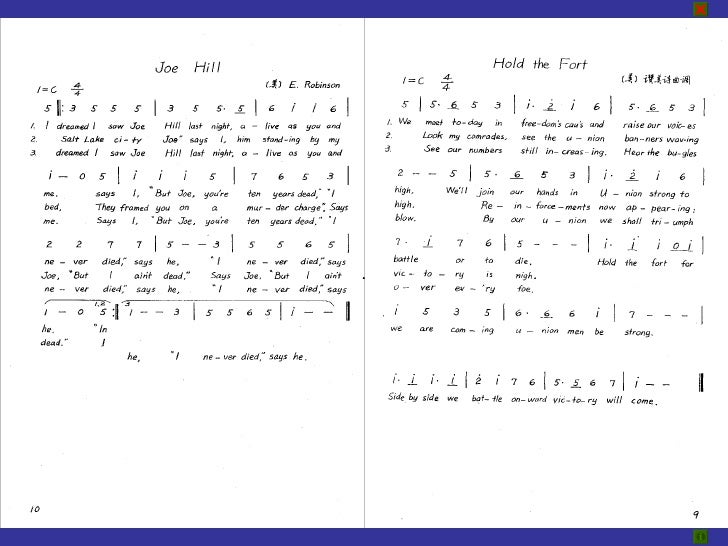 Joe Hill
1=C 4/4 (美) E. Robinson
5 ‖: 3 5 5 5 | 3 5 5· 5 | 6 i i 6 |
1. I dreamed I saw Joe Hill last night, a – live as you and
2. Salt Lake ci – ty Joe" says I, him stand-ing by my
3. dreamed I saw Joe Hill last night, a – live as you and
i – 0 5 | i i i 5 | 7 6 5 3 |
me. says I, "But Joe, you're ten years dead," "I
bed, They framed you on a mur – der charge", Says
me. Says I, "But Joe, you're ten years dead." "I
2 2 7 7 | 5 – – 3 | 5 5 6 5 |
ne – ver died," says he, "I ne – ver died," says
Joe, "But I ain't dead." Says Joe. "But I ain't
ne – ver died," says he, "I ne – ver died," says
1.2. 3
i – 0 5 :‖ i – – 3 | 5 5 6 5 | i – – ‖
he. "In
dead." I
he, "I ne – ver died," says he.
10
Hold the Fort
1=C 4/4 (美) 讚美诗曲调
5 | 5· 6 5 3 | i· 2 i 6 | 5· 6 5 3 |
1. We meet to-day in free-dom's cau's and raise our voic-es
2. Look my comrades, see the u – nion ban-ners waving
3. See our numbers still in-creas-ing. Hear the bu-gles
2 – – 5 | 5· 6 5 3 | i· 2 i 6 |
high, We'll join our hands in U – nion strong to
high. Re – in – force – ments now ap – pear – ing;
blow. By our u – nion we shall tri – umph
7· i 7 6 | 5 – – – | i· i i 0 i |
battle or to die. Hold the fort for
vic – to – ry is nigh.
o – ver ev – 'ry foe.
i 5 3 5 | 6· 6 6 i | 7 – – – |
we are com – ing u – nion men be strong.
i· i i· i | 2 i 7 6 | 5· 5 6 7 | i – – ‖
Side by side we bat-tle on-ward vic-to-ry will come.
9